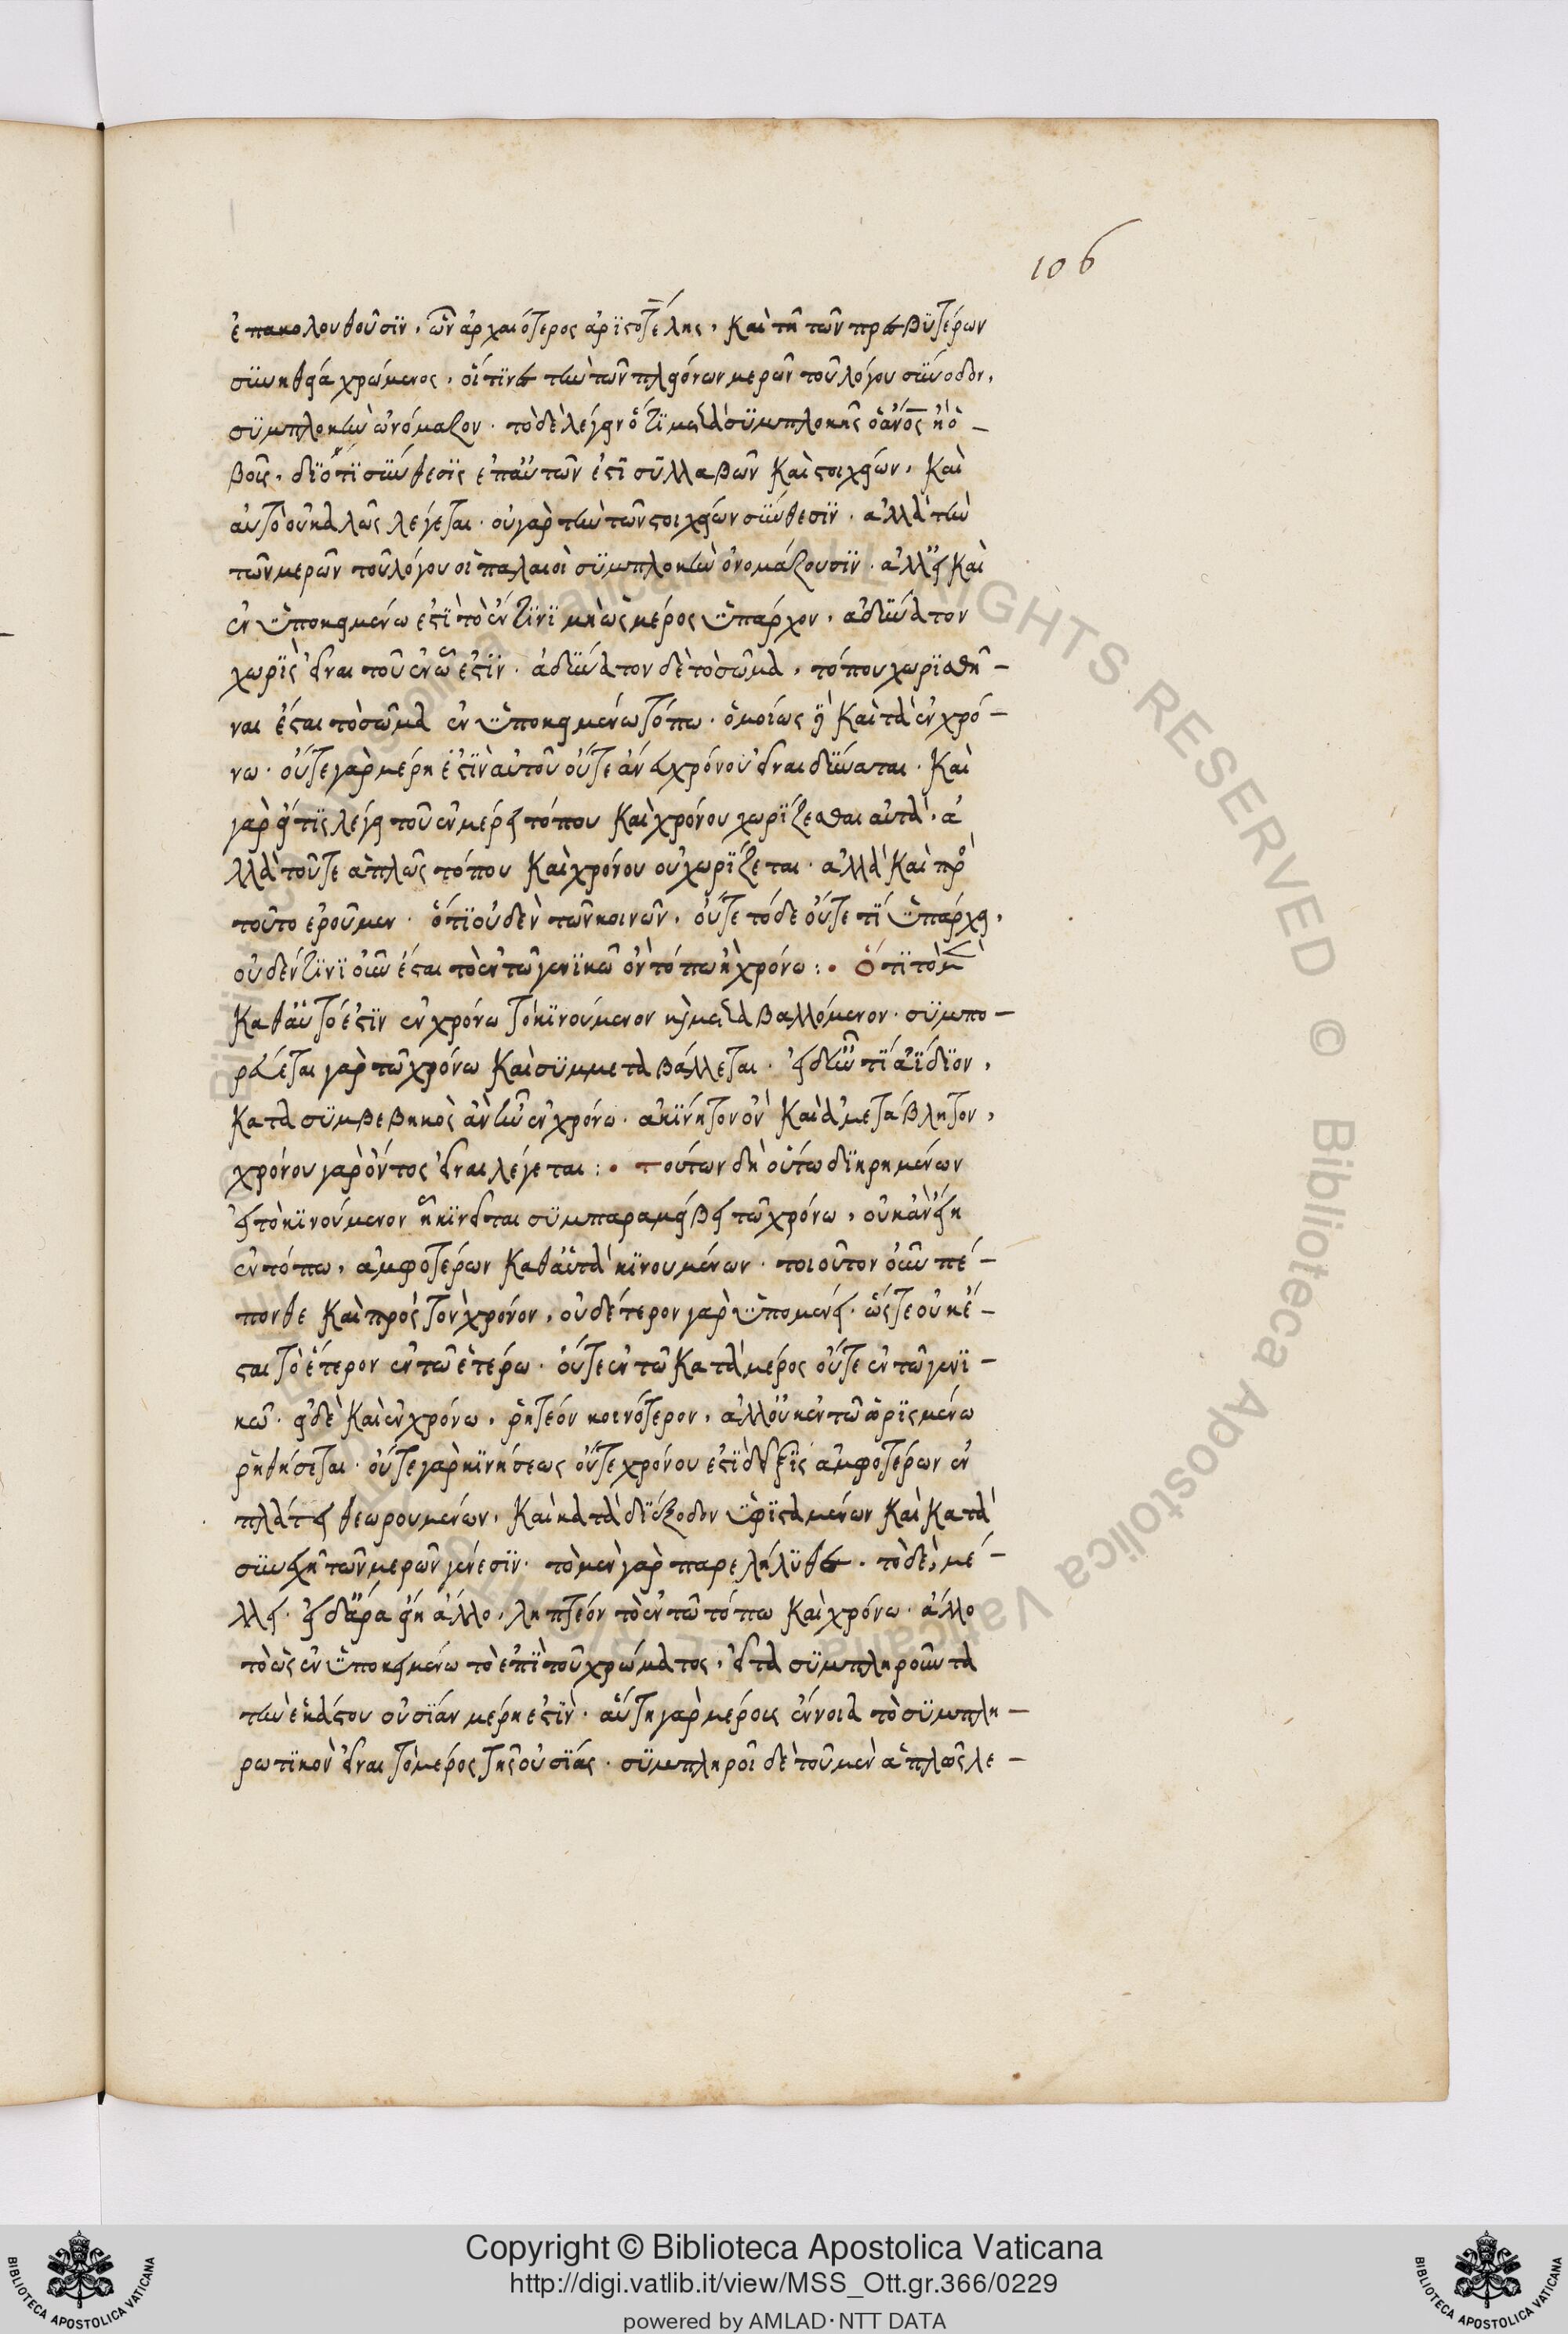 106
ἐπακολουθοῦσϊν, ὧν ἀρχαιότερος ἀρϊστοτέλης, καὶ τῆ τῶν πρεσβϋτέρων
σϋνηθεία χρώμενος, οἵτϊνες τὴν τῶν πλειόνων μερῶν τοῦ λόγου σΰνοδον,
σϋμπλοκὴν ὠνόμαζον. τὸ δὲ λέγειν ὅτϊ μετὰ σϋμπλοκῆς ὁ ἄνος ἢ ὁ –
βοῦς, δϊότϊ σΰνθεσϊς ἐπ' αὐτῶν ἐστὶ σϋλλαβῶν καὶ στοιχείων, καὶ
αὐτὸ οὐ καλῶς λέγεται. οὐ γὰρ τὴν τῶν στοιχείων σΰνθεσϊν. ἀλλὰ τὴν
τῶν μερῶν τοῦ λόγου οἱ παλαιοὶ σϋμπλοκὴν ὀνομάζουσϊν. ἀλλ' εἰ καὶ
ἐν ὑποκειμένω ἐστὶ τὸ ἔν τϊνϊ μὴ ὡς μέρος ὑπάρχον, ἀδΰνατον
χωρϊς εἶναι τοῦ ἐν ὧ ἐστϊν. ἀδΰνατον δὲ τὸ σῶμα, τόπου χωρϊσθῆ –
ναι ἔσται τὸ σῶμα ἐν ὑποκειμένω τόπω. ὁμοίως δὲ καὶ τὰ ἐν χρό –
νω. οὔτε γὰρ μέρη ἐστϊν αὐτοῦ οὔτε ἄνευ χρόνου εἶναι δΰναται. καὶ
γὰρ εἴ τϊς λέγει τοῦ ἐν μέρει τόπου καὶ χρόνου χωρΐζεσθαι αὐτὰ, ἀ
λλὰ τοῦτε ἁπλῶς τόπου καὶ χρόνου οὐ χωρΐζεται. ἀλλὰ καὶ πρὸς
τοῦτο ἐροῦμεν. ὅτϊ οὐδὲν τῶν κοινῶν, οὔτε τόδε οὔτε τϊ ὑπάρχει,
οὐδέν τϊνϊ οὖν ἔσται τὸ ἐν τῶ γενϊκῶ ὂν τόπω ἢ χρόνω: • Ὅτϊ τὸ μὲν
καθ' αὑτό ἐστϊν ἐν χρόνω τὸ κϊνούμενον καὶ μεταβαλλόμενον. σϋμπο –
ρεύεται γὰρ τῶ χρόνω καὶ σϋμμεταβάλλεται. εἰ δ' ἦν τϊ ἀΐδϊον,
κατα σϋμβεβηκὸς ἂν ἦν ἐν χρόνω. ἀκΐνητον ὂν καὶ ἀμετάβλητον,
χρόνου γὰρ ὄντος εἶναι λέγεται: • τούτων δὴ οὕτω δϊηρημένων
εἰ τὸ κϊνούμενον ἧ κϊνεῖται σϋμπαραμείβει τῶ χρόνω, οὐκ ἂν εἴη
ἐν τόπω, ἀμφοτέρων καθ' αὑτὰ κϊνουμένων. τοιοῦτον οὖν πέ –
πονθε καὶ πρὸς τὸν χρόνον, οὐδέτερον γὰρ ὑπομένει. ὥστε οὐκ ἔ –
σται τὸ ἕτερον ἐν τῶ ἑτέρω. οὔτε ἐν τῶ κατὰ μέρος οὔτε ἐν τῶ γενϊ –
κῶ. εἰ δὲ καὶ ἐν χρόνω, ῥητέον κοινότερον, ἀλλ' οὐκ ἐν τῶ ὡρϊσμένω
ῥηθήσεται. οὔτε γὰρ κϊνήσεως οὔτε χρόνου ἐστϊ δεῖξϊς ἀμφοτέρων ἐν
πλάτει θεωρουμένων, καὶ κατὰ δϊέξοδον ὑφϊσταμένων καὶ κατὰ
σϋνεχῆ τῶν μερῶν γένεσϊν. τὸ μὲν γὰρ παρελήλϋθε. τὸ δὲ, μέ –
λλει. εἰ δ' ἄρα εἴη ἄλλο, ληπτέον τὸ ἐν τῶ τόπω καὶ χρόνω. ἄλλο
τὸ ὡς ἐν ὑποκειμένω τὸ ἐπϊ τοῦ χρώματος, εἶτα σϋμπληροῦντα
τὴν ἑκάστου οὐσϊάν μέρη ἐστϊν. αὕτη γὰρ μέρους ἔννοια τὸ σϋμπλη –
ρωτϊκὸν εἶναι τὸ μέρος τῆς οὐσϊάς. σϋμπληροῖ δὲ τοῦ μὲν ἁπλῶς λε –
Copyright © Biblioteca Apostolica Vaticana
http://digi.vatlib.it/view/MSS_Ott.gr.366/0229
powered by AMLAD·NTT DATA
BIBLIOTECA APOSTOLICA VATICANA
BIBLIOTECA APOSTOLICA VATICANA